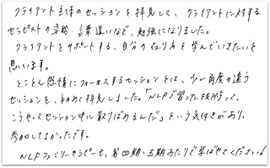 クライアント主体のセッションを拝見して、クライアントに対する
セラピストの姿勢・言葉遣いなど、勉強になりました。
クライアントをサポートする、自分の在り方を学んでいきたいと
思います。
とことん感情にフォーカスするセッションとは、少し角度の違う
セッションを、初めて拝見しました。「NLPで習った技術って、
こうやってセッション中に散りばめるんだ」という気付きがあり、
参加してよかったです。
NLPファミリーセラピーを、第四期・五期あたりで学ばせてください!